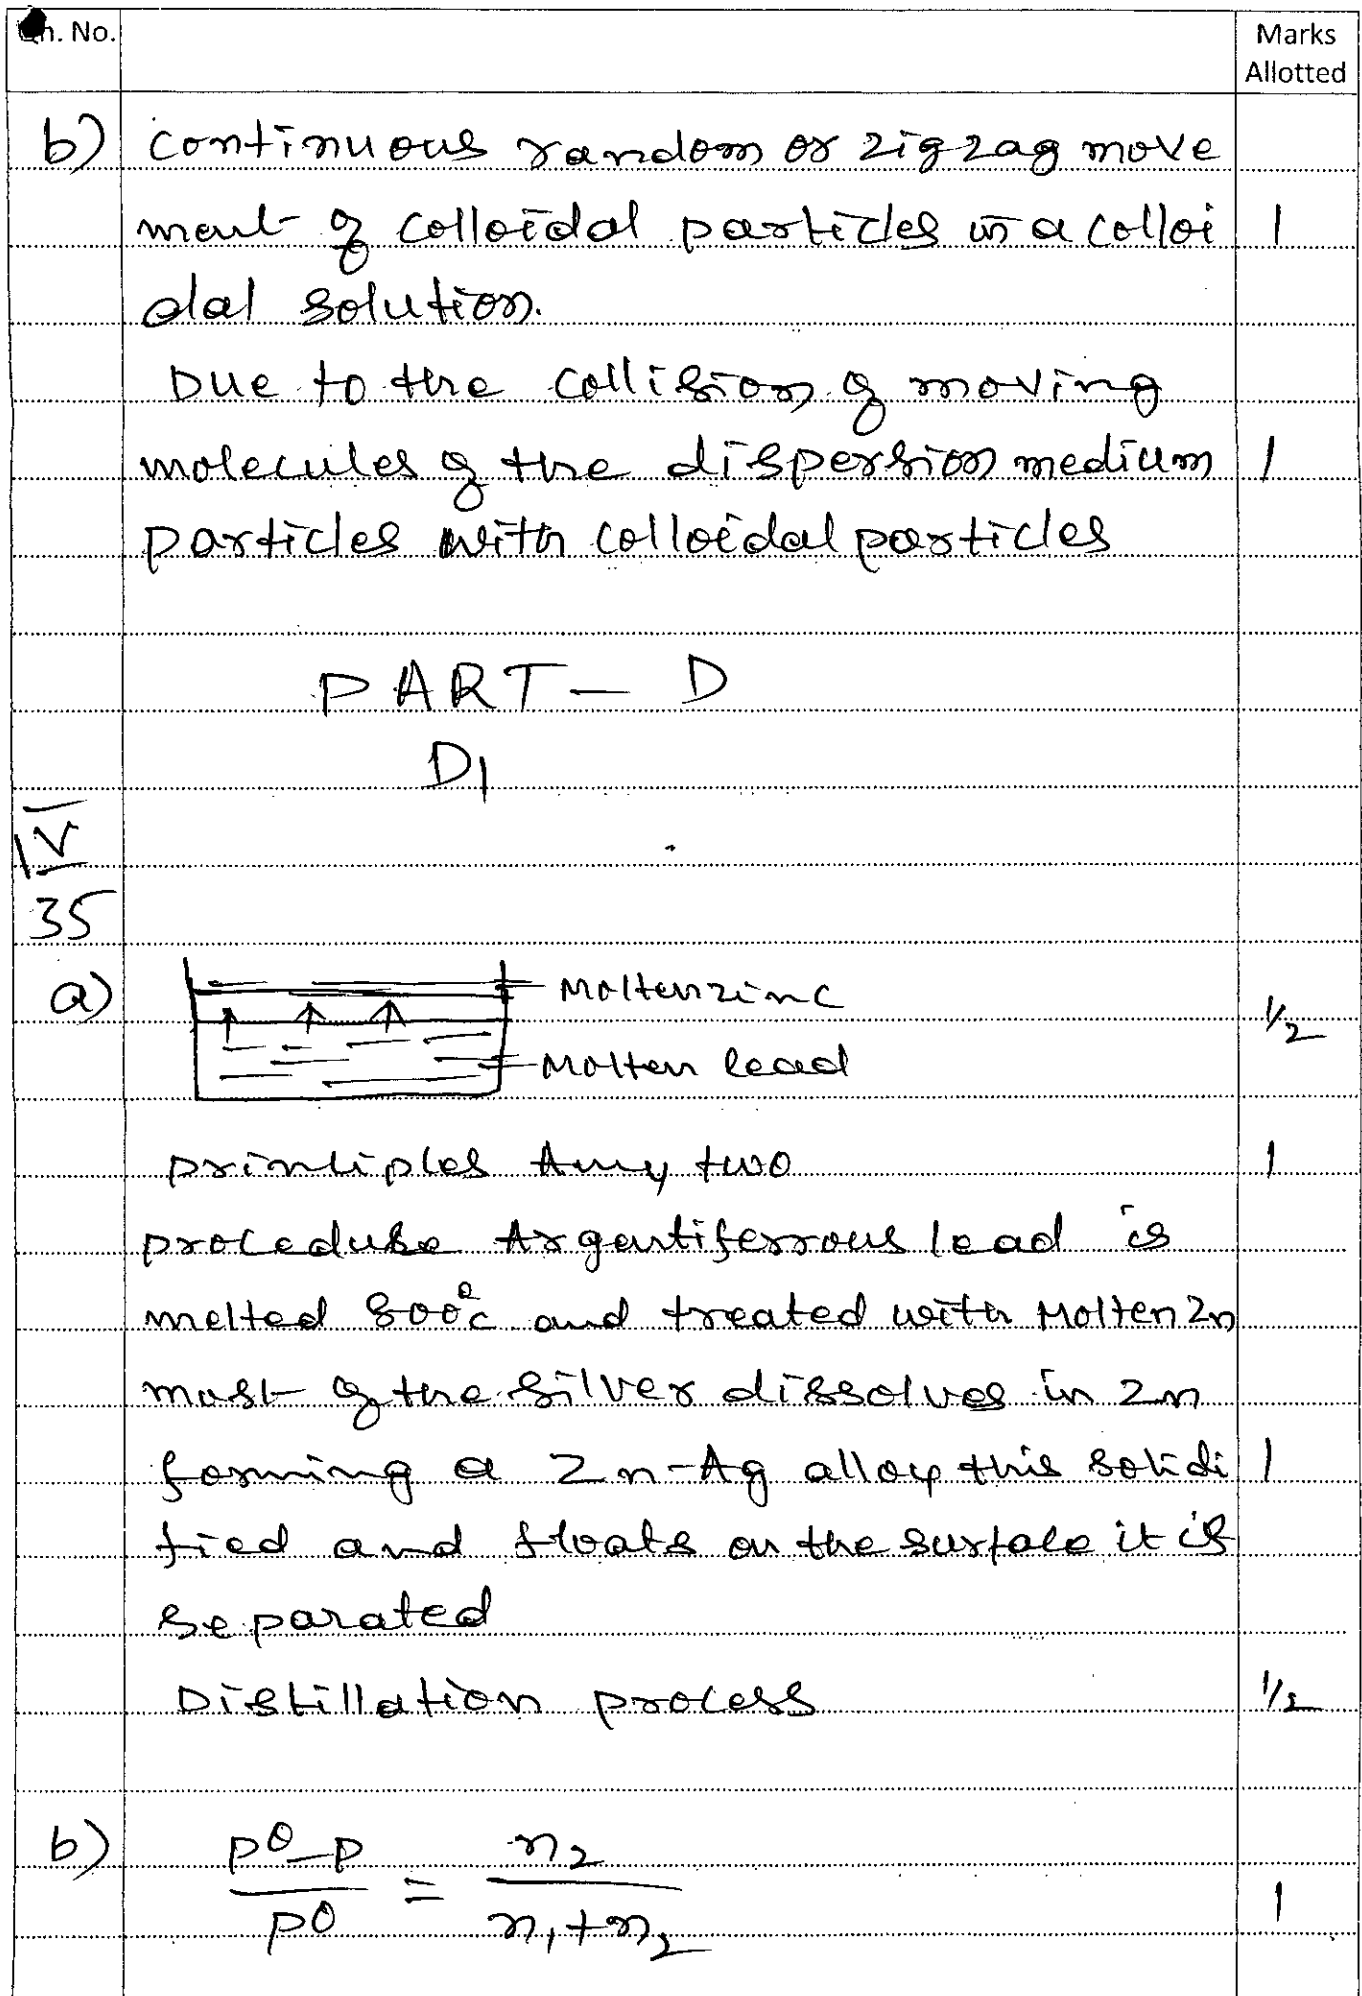 Qn. No.
Marks
Allotted
b) continuous random or zigzag move
ment of colloidal particles in a colloi 1
dal solution.
Due to the collision of moving
molecules of the dispersion medium 1
particles with colloidal particles
PART - D
D1
IV
35
a) Molten zinc 1/2
Molten lead
principles Any two 1
procedure Argentiferrous lead is
melted 800°c and treated with Molten Zn
most of the silver dissolves in Zn
forming a Zn-Ag alloy this solidi 1
fied and floats on the surface it is
separated
Distillation process 1/2
b) p⁰-p / p⁰ = n₂ / n₁+n₂ 1